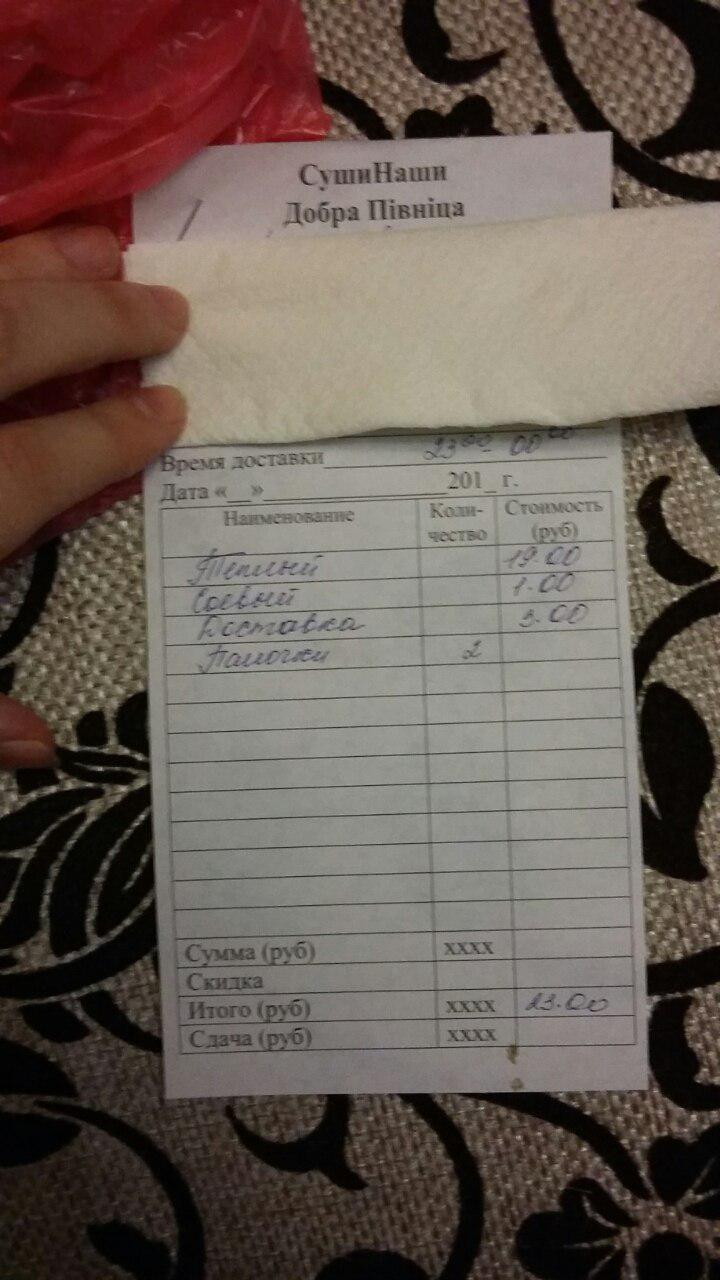 СушиНаши
Добра Півніца
Время доставки 23⁰⁰ 00⁰⁰
Дата «__»________________201_ г.
Наименование Коли-чество Стоимость (руб)
Теплый 19.00
Соевый 1.00
Доставка 3.00
Палочки 2
Сумма (руб) хххх
Скидка
Итого (руб) хххх 23.00
Сдача (руб) хххх